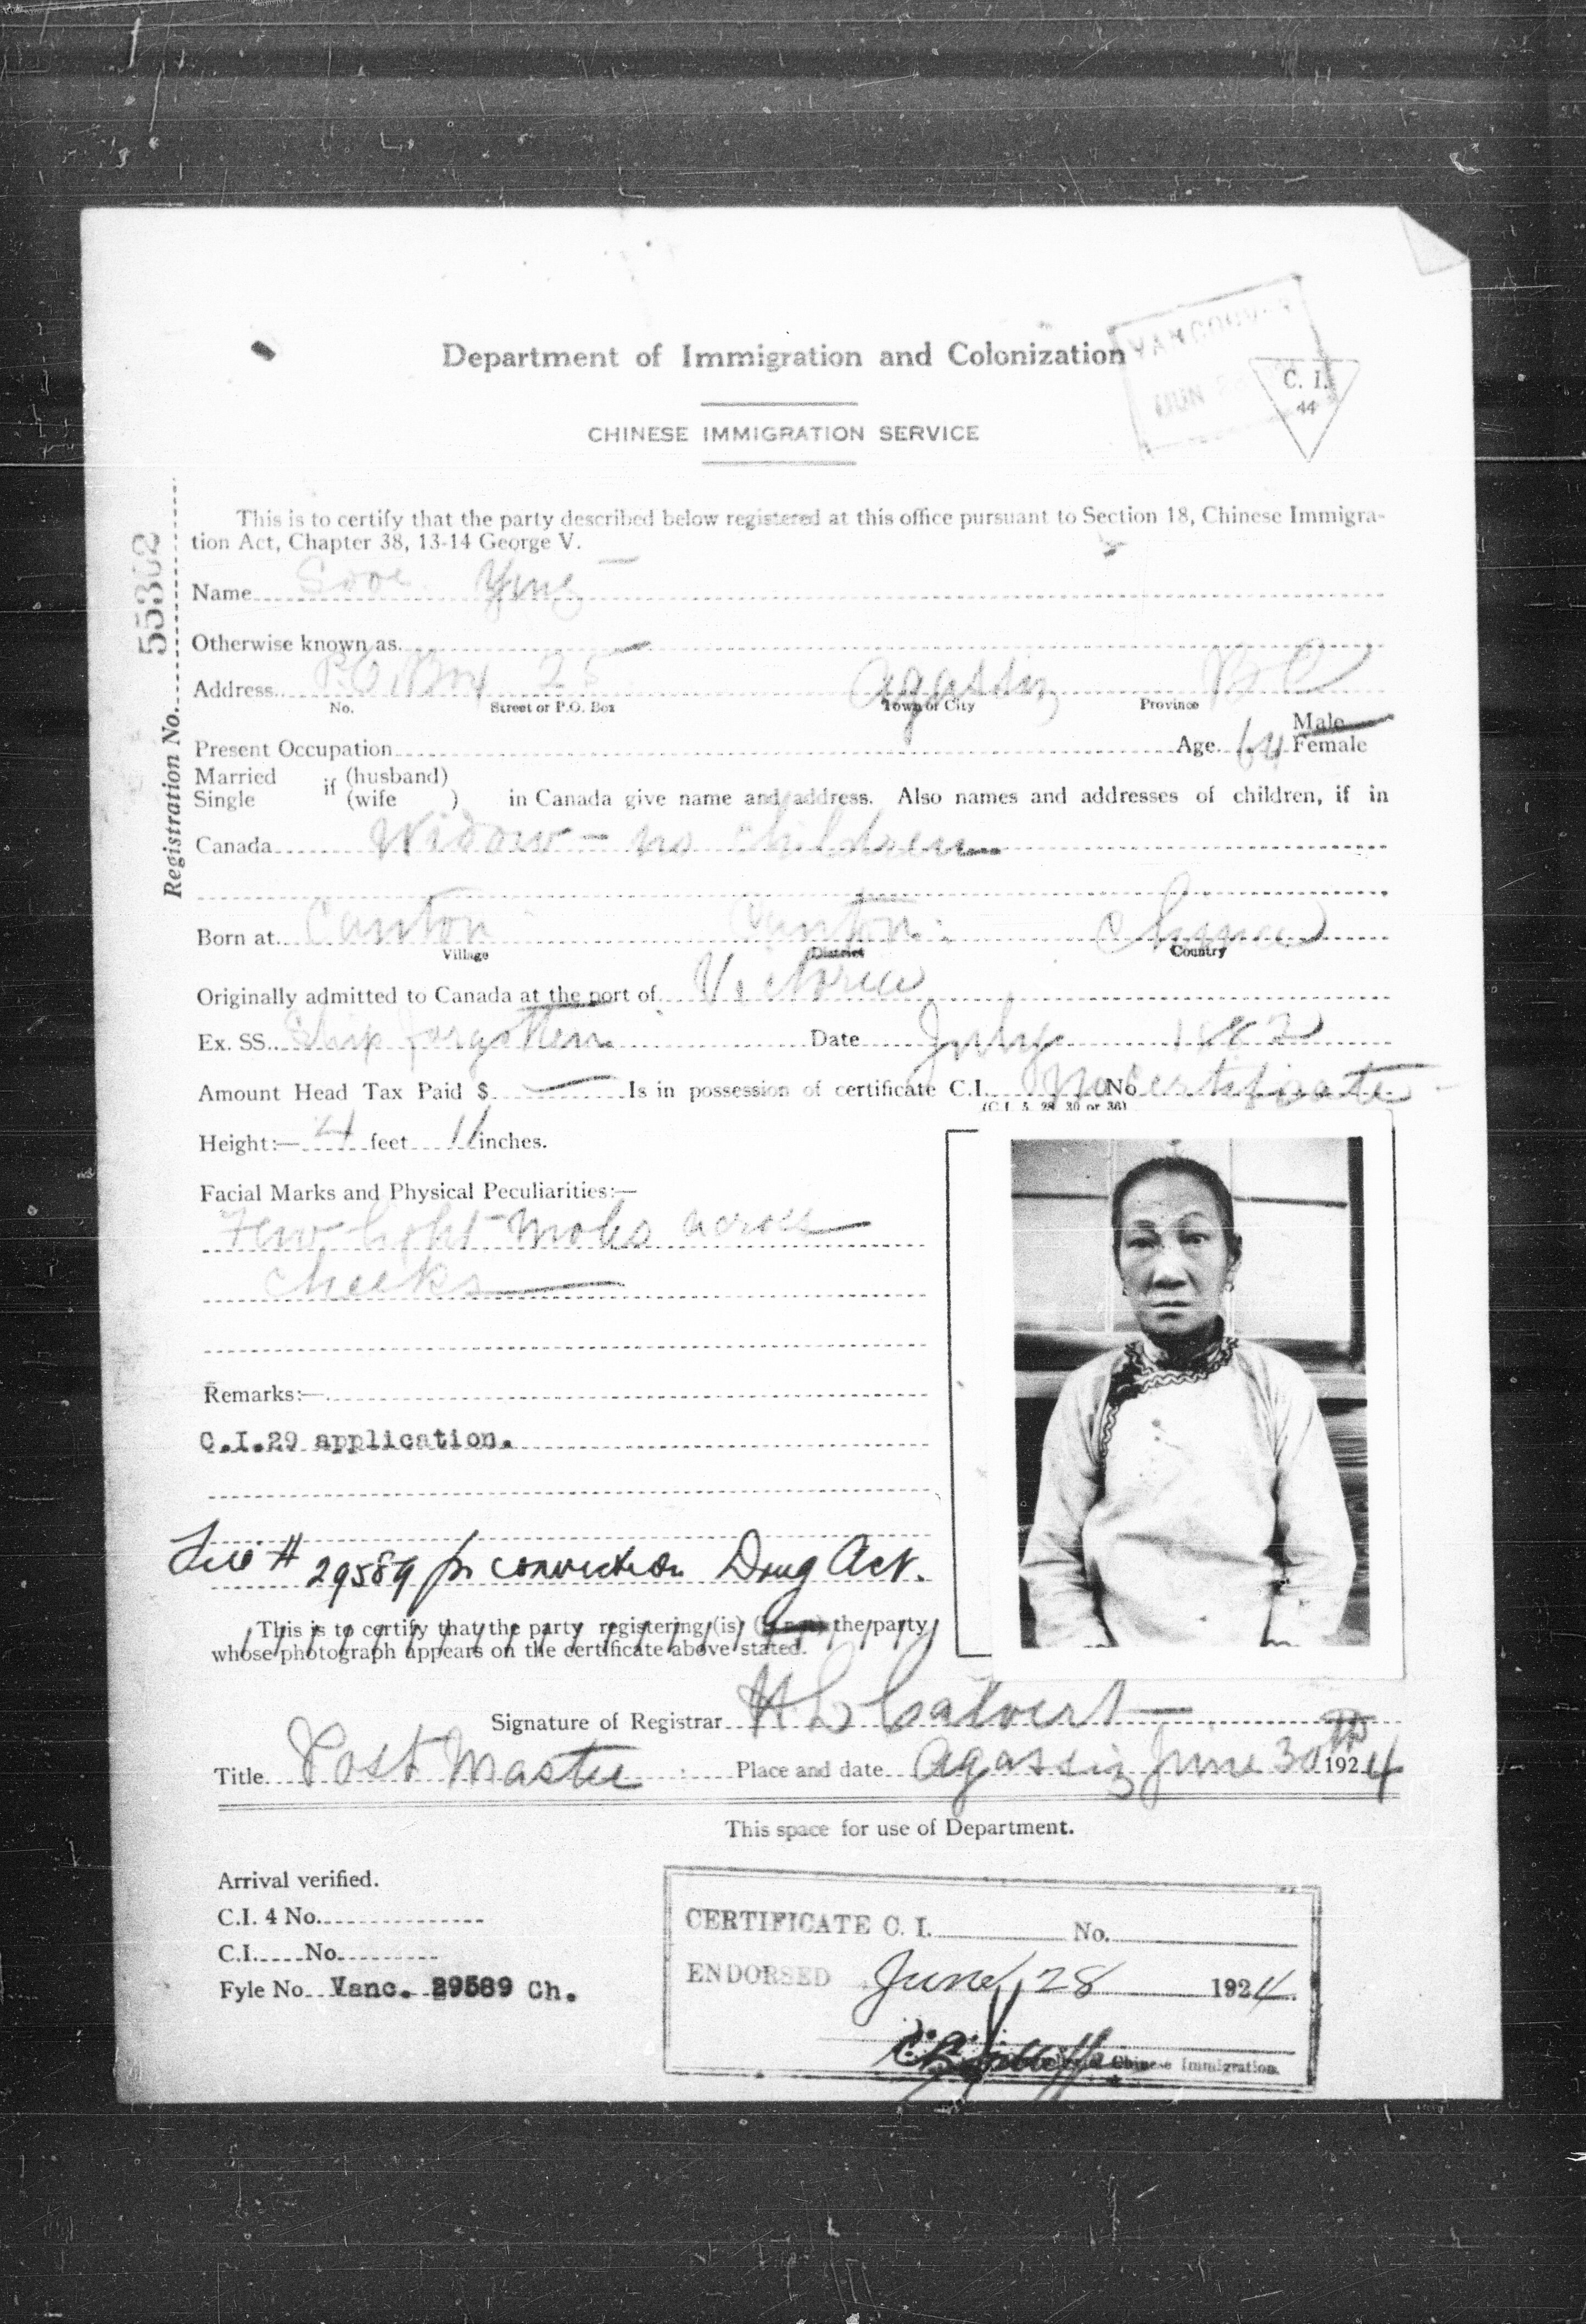 Department of Immigration and Colonization
VANCOUVER
JUN
C. I.
44
CHINESE IMMIGRATION SERVICE
This is to certify that the party described below registered at this office pursuant to Section 18, Chinese Immigra-
tion Act, Chapter 38, 13-14 George V.
Registration No.
Name Sooe Ying
Otherwise known as
Address P.O. Box 25 Agassiz B C
No. Street or P.O. Box Town or City Province
Present Occupation Age 64 Male Female
Married Single if (husband) (wife ) in Canada give name and address. Also names and addresses of children, if in
Canada Widow - no children
Born at Canton Canton China
Village District Country
Originally admitted to Canada at the port of Victoria
Ex. SS. Ship forgotten Date July 1882
Amount Head Tax Paid $ — Is in possession of certificate C.I. No No certificate
(C.I. 5, 28, 30 or 36)
Height:— 4 feet 11 inches.
Facial Marks and Physical Peculiarities:—
Few light moles across
cheeks
Remarks:—
C.I.29 application.
29589 for conviction Drug Act.
This is to certify that the party registering (is) (is not) the party
whose photograph appears on the certificate above stated.
Signature of Registrar H L Calvert
Title Post Master Place and date Agassiz June 30th 1924
This space for use of Department.
Arrival verified.
C.I. 4 No.
C.I. No.
Fyle No. Vanc. 29589 Ch.
CERTIFICATE C. I. No.
ENDORSED June 28 1924.
Chinese Immigration.